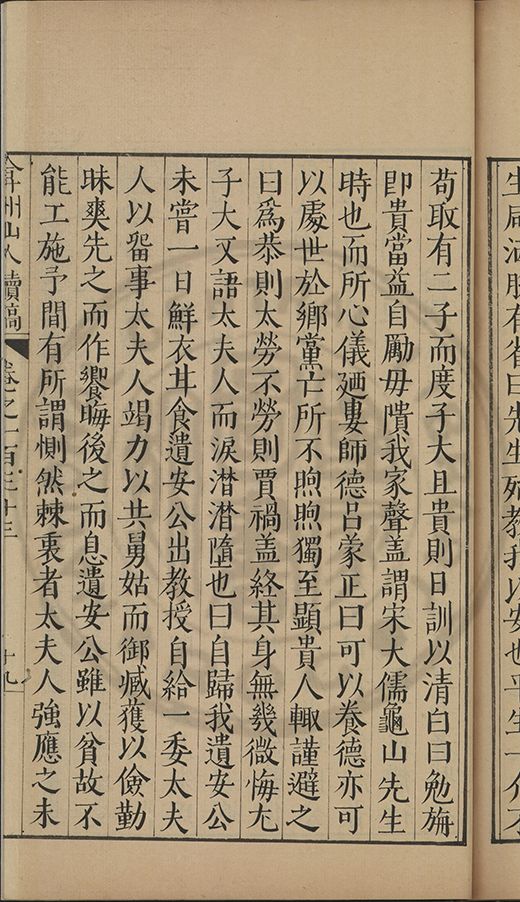 生
苟取有二子而度子大且貴則日訓以清白曰勉旃
即貴當益自勵毋隤我家聲盖謂宋大儒龜山先生
時也而所心儀廼婁師德呂蒙正曰可以養德亦可
以處世於鄉黨亡所不煦煦獨至顯貴人輙謹避之
曰爲恭則太勞不勞則賈禍盖終其身無幾微悔尤
子大又語太夫人而淚潸潸隨也曰自歸我遺安公
未嘗一日鮮衣甘食遺安公出教授自給一委太夫
人以畱事太夫人竭力以共舅姑而御臧獲以儉勤
昧爽先之而作饗晦後之而息遺安公雖以貧故不
能工施予間有所謂惻然棘裏者太夫人強應之未
弇州山人續稿 卷之一百三十三 十九